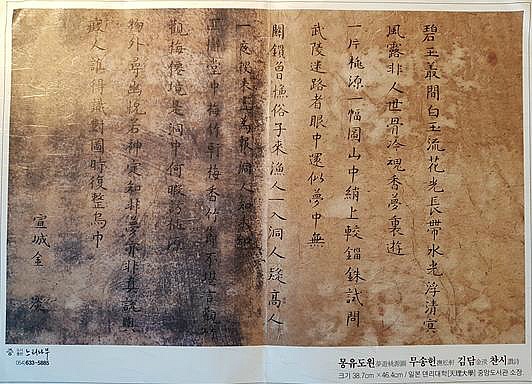 碧玉叢開白玉流花光長帶水光浮清寒
風露非人世骨冷魂香夢裏遊
一片桃源一幅圖山中綃上較錙銖試問
武陵迷路者眼中還似夢中無
關鎖曾 俗子來漁人一入洞人疑高人
一夜從 為報洞人知
匪懈堂中梅竹軒梅香 言觀
觀梅 境是洞中何暇
物外尋幽怳若神定知非夢亦非真說與
人誰得識 圖時復整烏巾
宣城金
노리나무
054)633-5885
몽유도원夢遊桃源圖 무송헌撫松軒 김담金淡 찬시讚詩
크기 38.7cm × 46.4cm / 일본 덴리대학[天理大學] 중앙도서관 소장